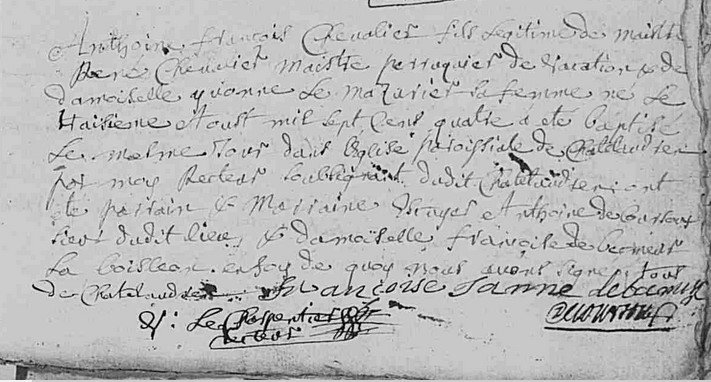 Anthoine François Chevalier fils legitime de maistre
René Chevalier maistre perruquier de vacation & de
damoiselle yvonne Le mazurier sa femme né Le
traisieme Aoust mil sept Cens quatre a été baptisé
Le mesme Jour dans L'eglise paroissiale de Chatelaudren
par moy Recteur soubsignant dudit Chatelaudren ont
été parrain & Marraine Anthoine de
sieur dudit lieu & damoiselle françoise de
La boissiere en foy de quoy nous avons signé
de Chatelaudren Françoise Janne
Le Carpentier
recteur